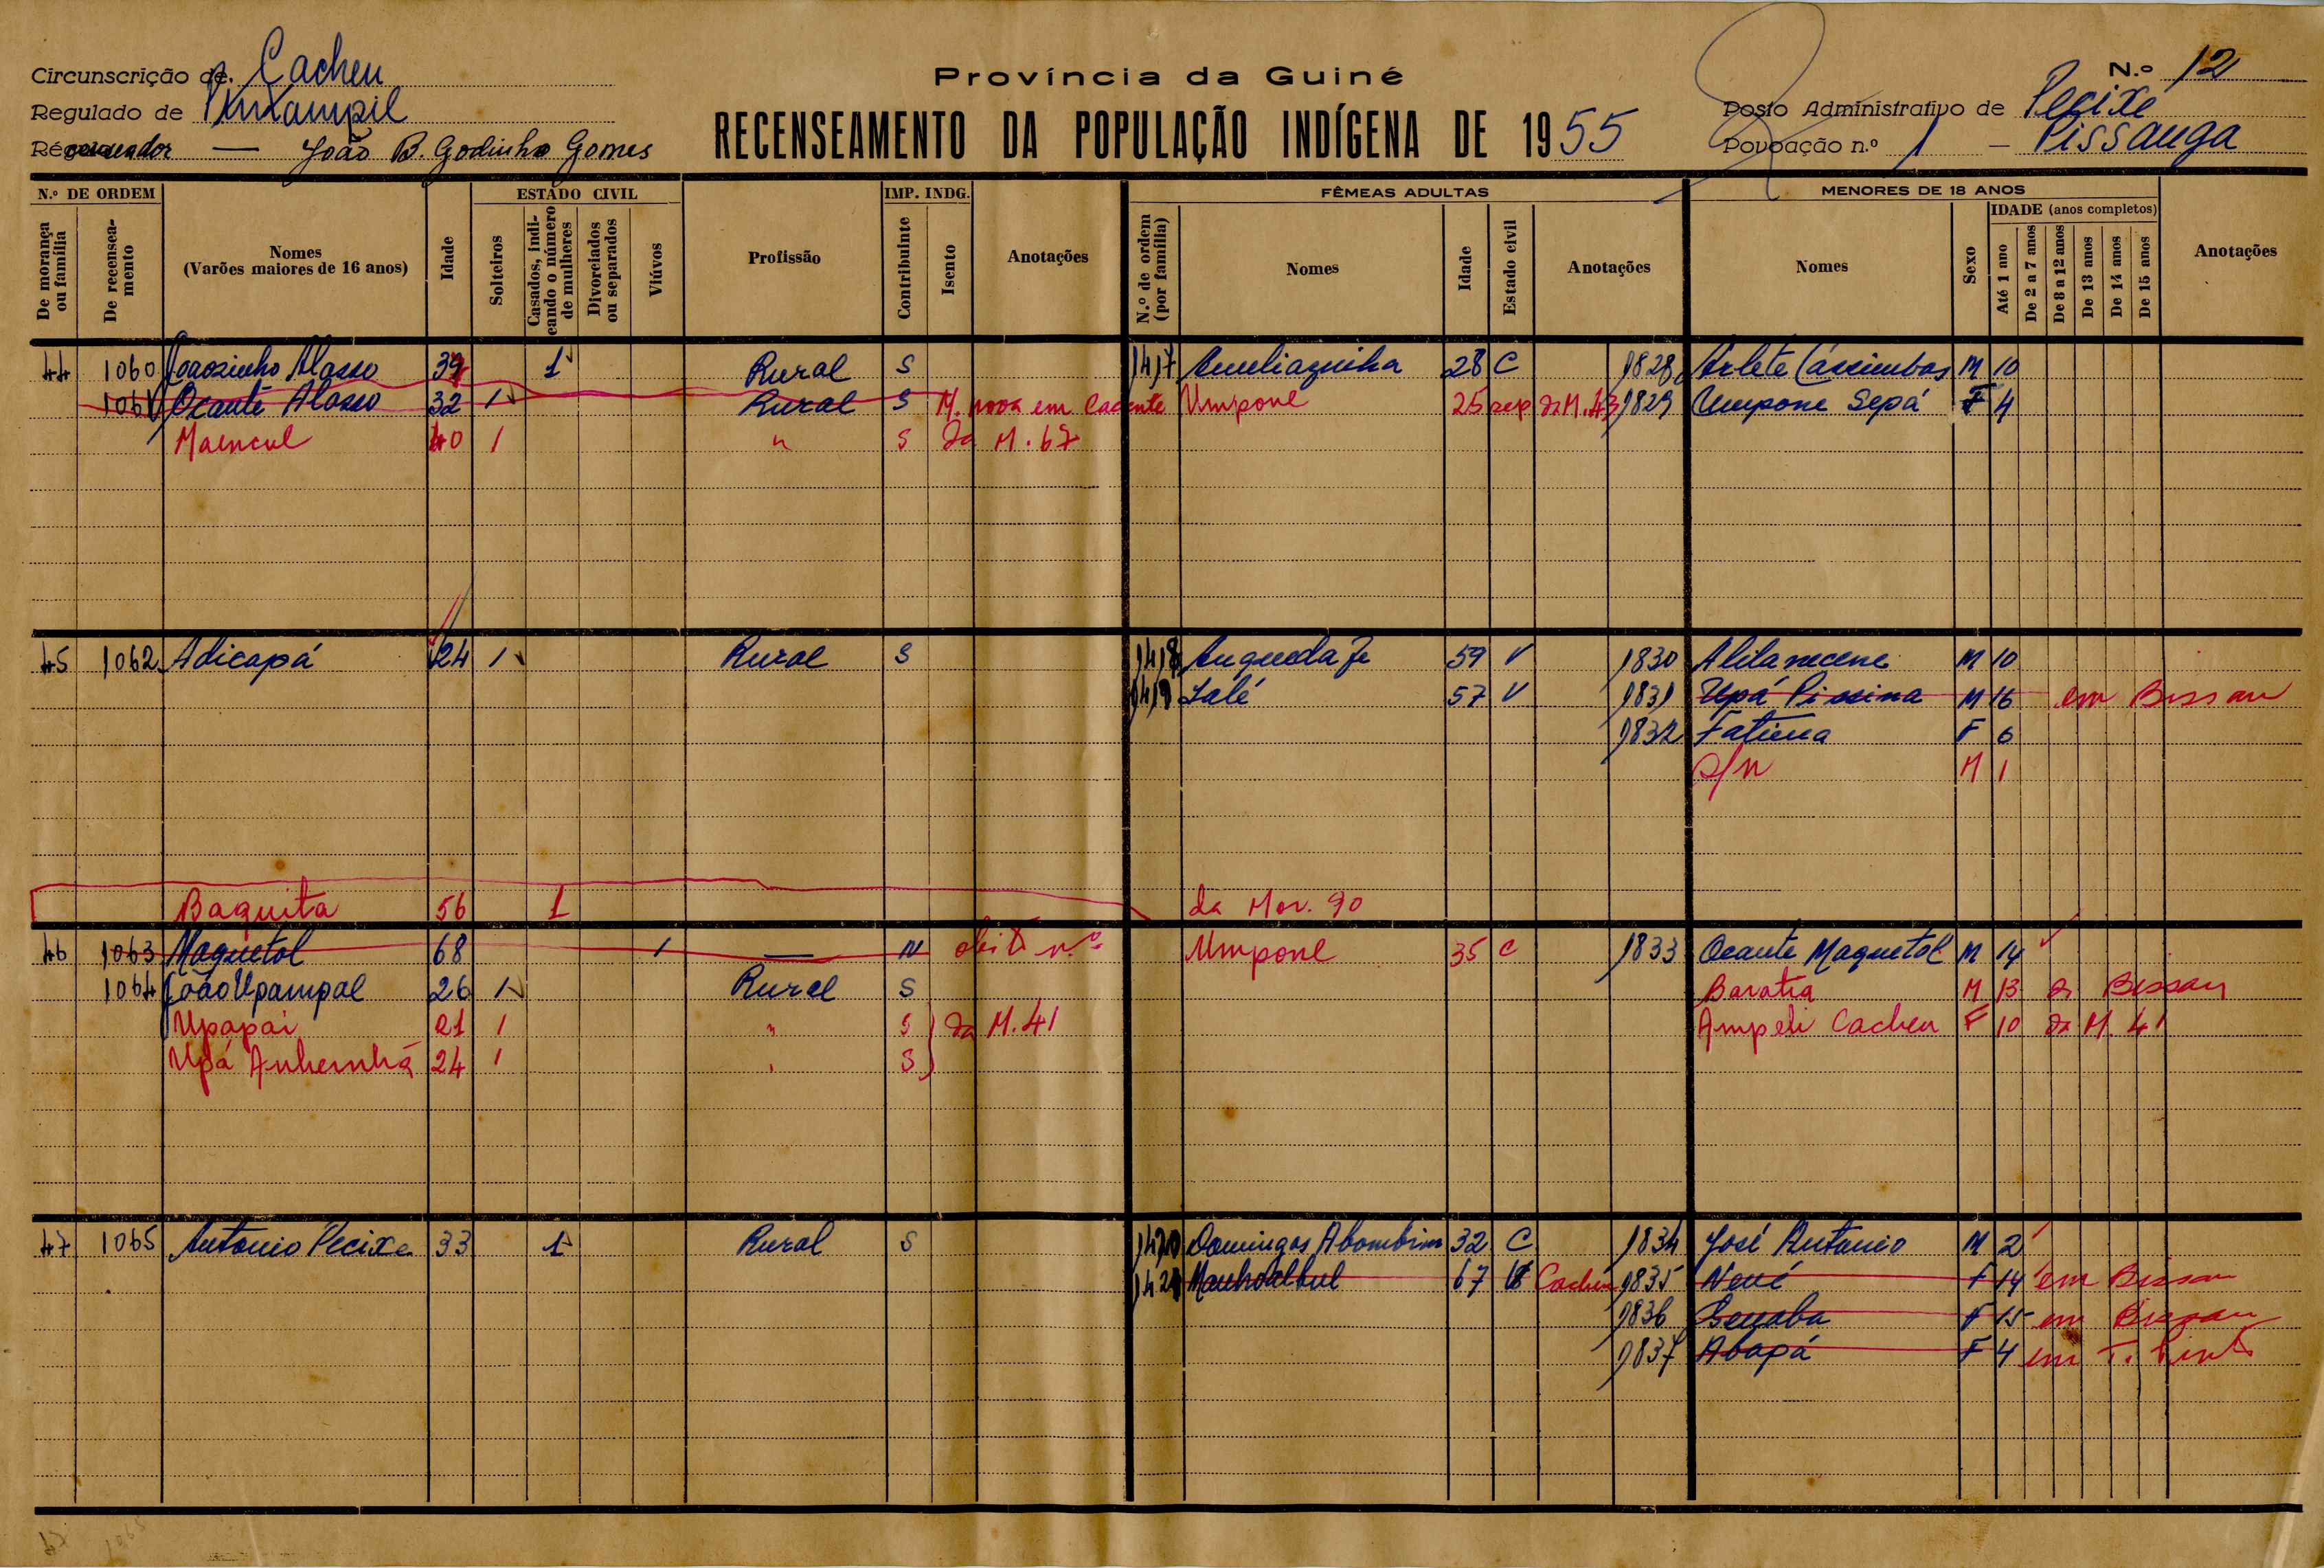 Província da Guiné
N.º 12
Circunscrição de Cacheu
Regulado de
João B. Godinho Gomes
RECENSEAMENTO DA POPULAÇÃO INDÍGENA DE 1955
Posto Administrativo de Pecixe
Povoação n.º 1 — Pissanga
N.º DE ORDEM
De morança ou família
De recenseamento
Nomes (Varões maiores de 16 anos)
Idade
ESTADO CIVIL
Solteiros
Casados, indicando o número de mulheres
Divorciados ou separados
Viúvos
Profissão
IMP. INDG.
Contribuinte
Isento
Anotações
FÊMEAS ADULTAS
N.º de ordem (por família)
Nomes
Idade
Estado civil
Anotações
MENORES DE 18 ANOS
Nomes
Sexo
IDADE (anos completos)
Até 1 ano
De 2 a 7 anos
De 8 a 12 anos
De 13 anos
De 14 anos
De 15 anos
Anotações
44 1060 Joaosinho Alasso 39 1 Rural S 1417 Ameliazinha 28 C 1828 Arlete M 10
1061 Ocante Alasso 32 1 Rural S M. nova em Cacante Umpone 25 sep da M. 43 1829 Umpone Sepá F 4
Maencul 40 1 " S da M. 67
45 1062 Adicapá 24 1 Rural S 1418 59 V 1830 M 10
1419 Salé 57 V 1831 Upá Pissina M 16 em Bissau
1832 Fatima F 6
s/n M 1
Baquita 56 1 da Mor. 90
46 1063 Maquetol 68 1 — N obito nº Umpone 35 C 1833 Ocante Maquetol M 14
1064 João Upampal 26 1 Rural S Baratia M 13 de Bissau
Upapai 21 1 " S da M. 41 Ampeli Cacheu F 10 da M. 41
Upá Anhemhá 24 1 " S
47 1065 Antonio Pecixe 33 1 Rural S 1420 Domingas Abombim 32 C 1834 José Antonio M 2
1421 67 V Cacheu 1835 Nené F 14 em Bissau
1836 Benaba F 15 em Bissau
1837 Abapá F 4 em T. Pinto